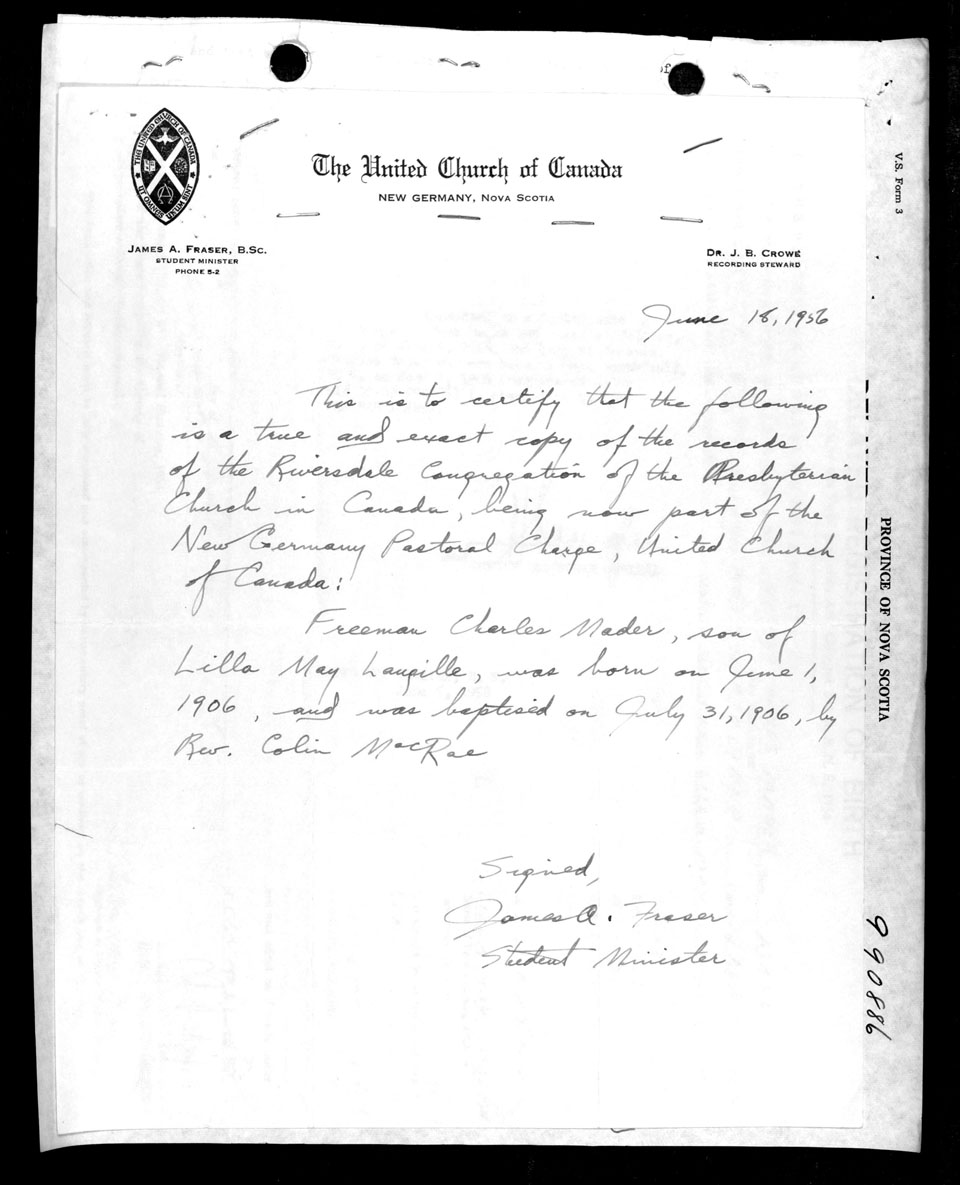 THE UNITED CHURCH OF CANADA
UT OMNES UNUM SINT
The United Church of Canada
NEW GERMANY, NOVA SCOTIA
JAMES A. FRASER, B.SC.
STUDENT MINISTER
PHONE 5-2
DR. J. B. CROWE
RECORDING STEWARD
June 18, 1956
This is to certify that the following
is a true and exact copy of the records
of the Riversdale Congregation of the Presbyterian
Church in Canada, being now part of the
New Germany Pastoral Charge, United Church
of Canada:
Freeman Charles Mader, son of
Lilla May Langille, was born on June 1,
1906, and was baptised on July 31, 1906, by
Rev. Colin MacRae
Signed,
James A. Fraser
Student Minister
V.S. Form 3
PROVINCE OF NOVA SCOTIA
990886